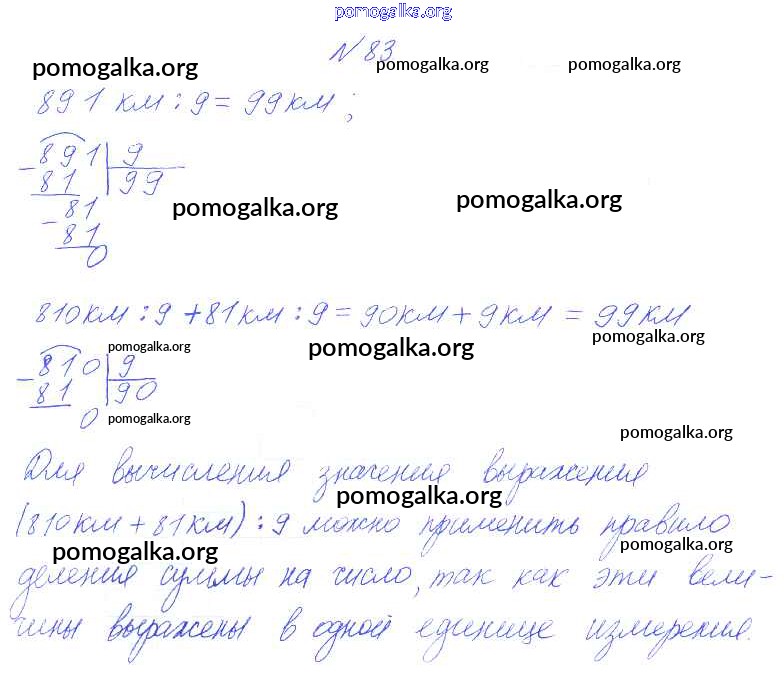 pomogalka.org
N 83
pomogalka.org pomogalka.org pomogalka.org
891 км : 9 = 99 км ;
891 | 9
81 | 99
81
pomogalka.org pomogalka.org
81
0
810 км : 9 + 81 км : 9 = 90 км + 9 км = 99 км
pomogalka.org pomogalka.org pomogalka.org
810 | 9
81 | 90
0 pomogalka.org
pomogalka.org
Для вычисления значения выражения
pomogalka.org
(810 км + 81 км) : 9 можно применить правило
pomogalka.org pomogalka.org
деления суммы на число, так как эти вели-
чины выражены в одной единице измерения.